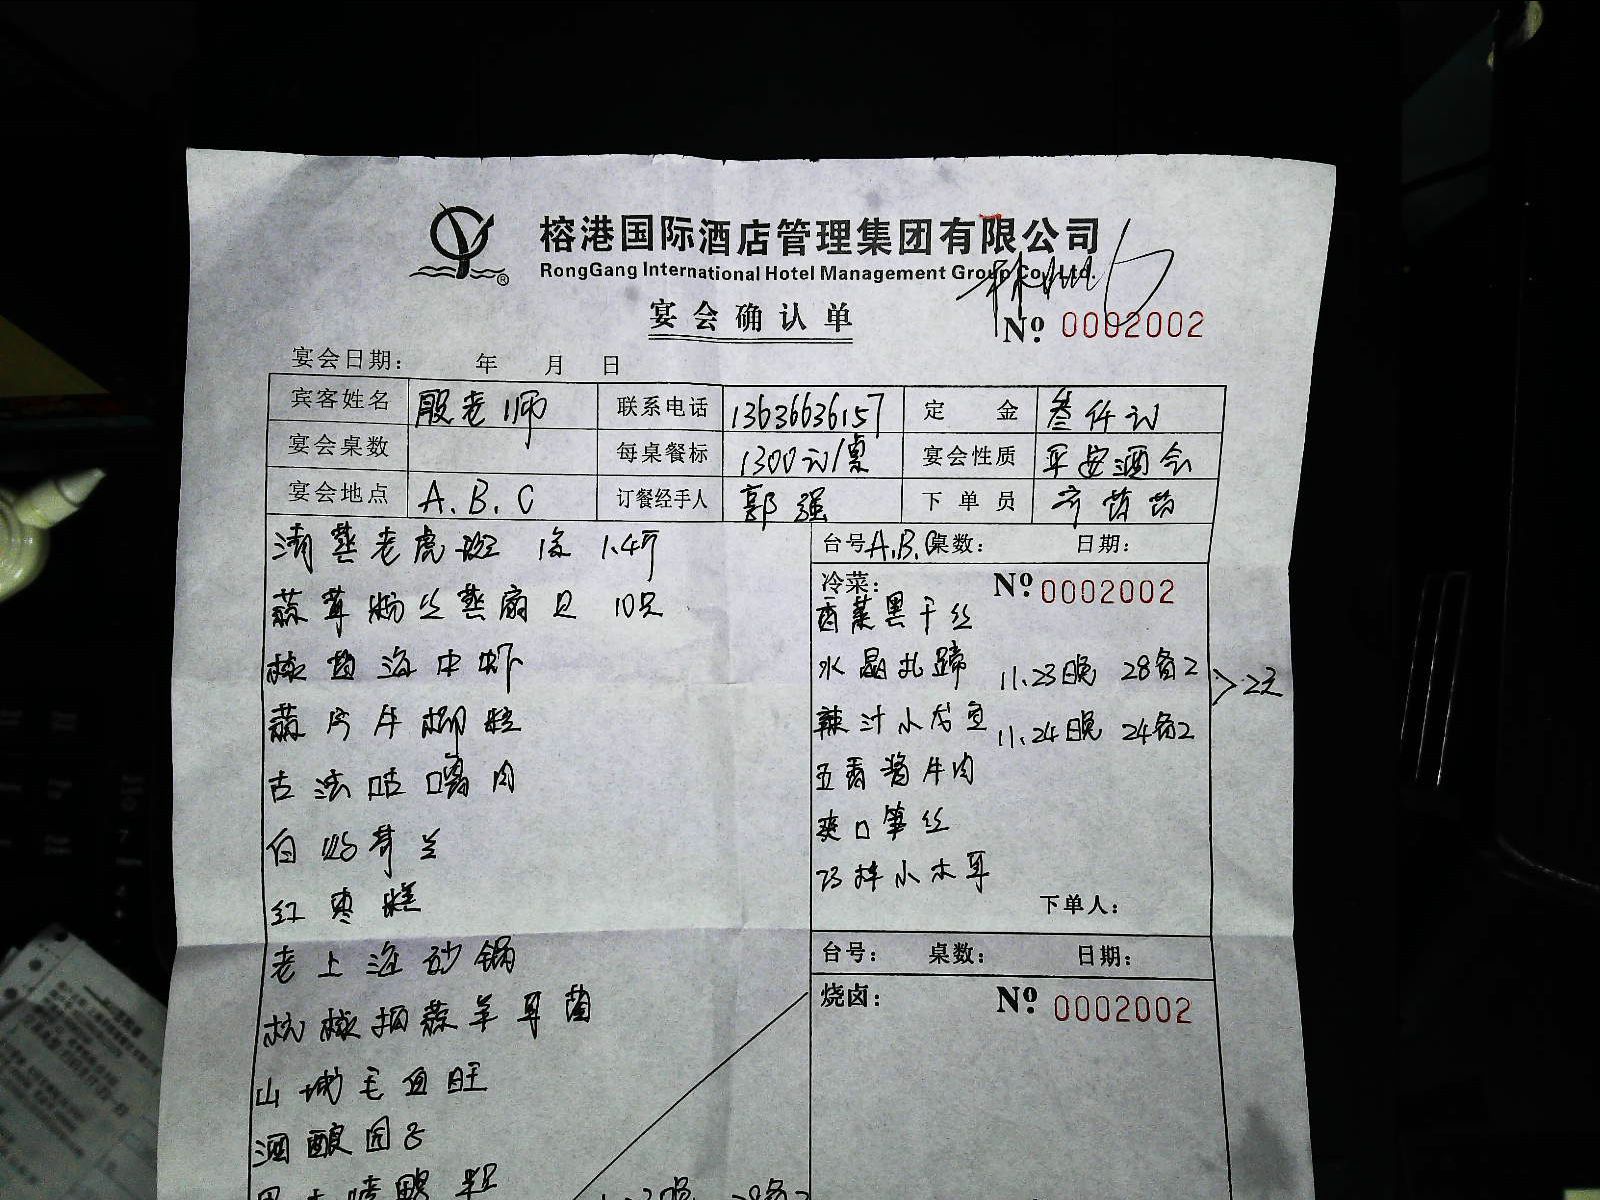 榕港国际酒店管理集团有限公司
RongGang International Hotel Management Group Co., Ltd.
宴会确认单
No. 0002002
宴会日期: 年 月 日
宾客姓名 殷老师 联系电话 13636636157 定 金 叁仟元
宴会桌数 每桌餐标 1300元/桌 宴会性质 平安酒会
宴会地点 A.B.C 订餐经手人 郭强 下单员
清蒸老虎斑 1条 1.4斤
蒜茸粉丝蒸扇贝 10只
椒盐海中虾
蒜片牛柳粒
古法咕噜肉
白灼芥兰
红枣糕
老上海砂锅
杭椒抽蒜羊耳菌
山城毛血旺
酒酿园子
台号: A.B.C 桌数: 日期:
冷菜: No. 0002002
香菜黑干丝
水晶扎蹄 11.23晚 28备2
辣汁小龙鱼 11.24晚 24备2
五香酱牛肉
爽口笋丝
巧拌小木耳
下单人:
台号: 桌数: 日期:
烧卤: No. 0002002